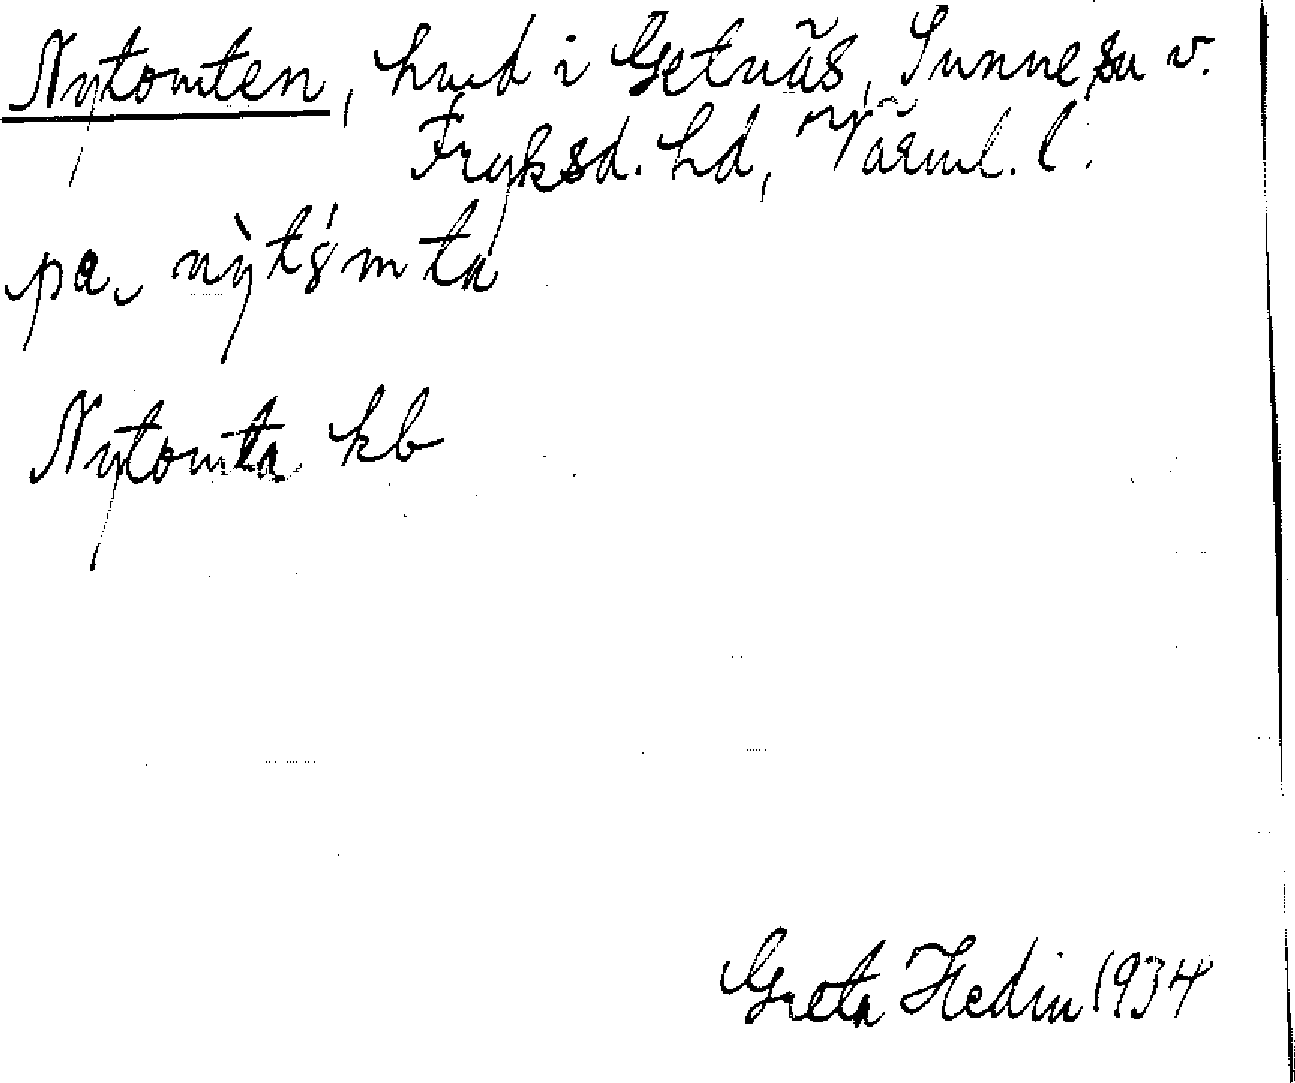 Nytomten, hmd i Getnäs, Sunne sn v.
Fryksd. hd, Värml. l.
pa, nỳtǿmta
Nytomta kb
Greta Hedin 1934